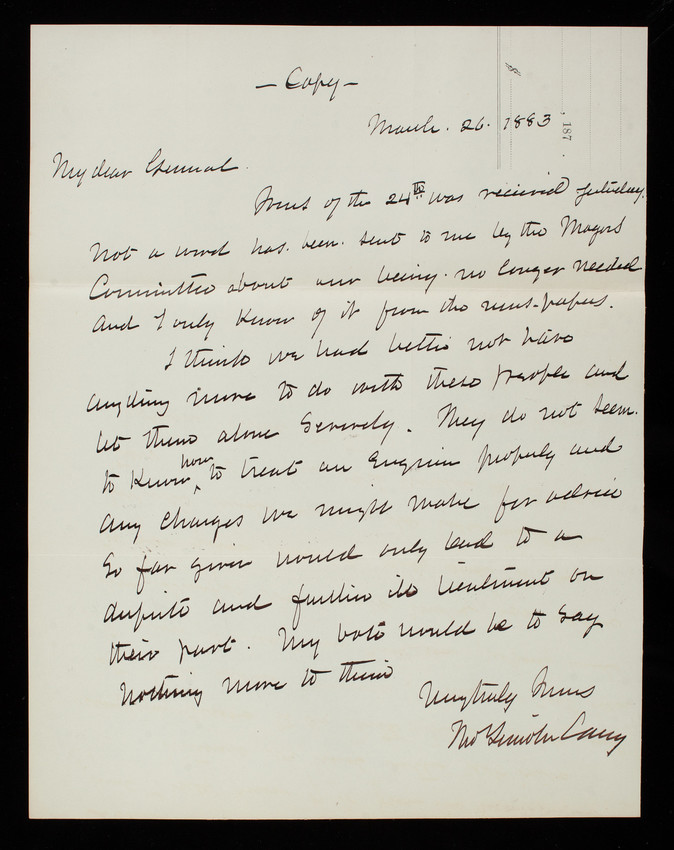 - Copy -
March. 26. 1883
, 187 .
My dear General.
Yours of the 24th was received Saturday.
Not a word has. been. sent to me by the Mayors
Committee about our being. no longer needed
and I only know of it from the news-papers.
I think we had better not have
anything more to do with these people and
let them alone severely. They do not seem.
to know how to treat an Engineer properly and
any charges we might make for advice
so far given would only lead to a
dispute and further ill treatment on
their part. My vote would be to say
nothing more to them
Very truly Yours
Thos Lincoln Casey